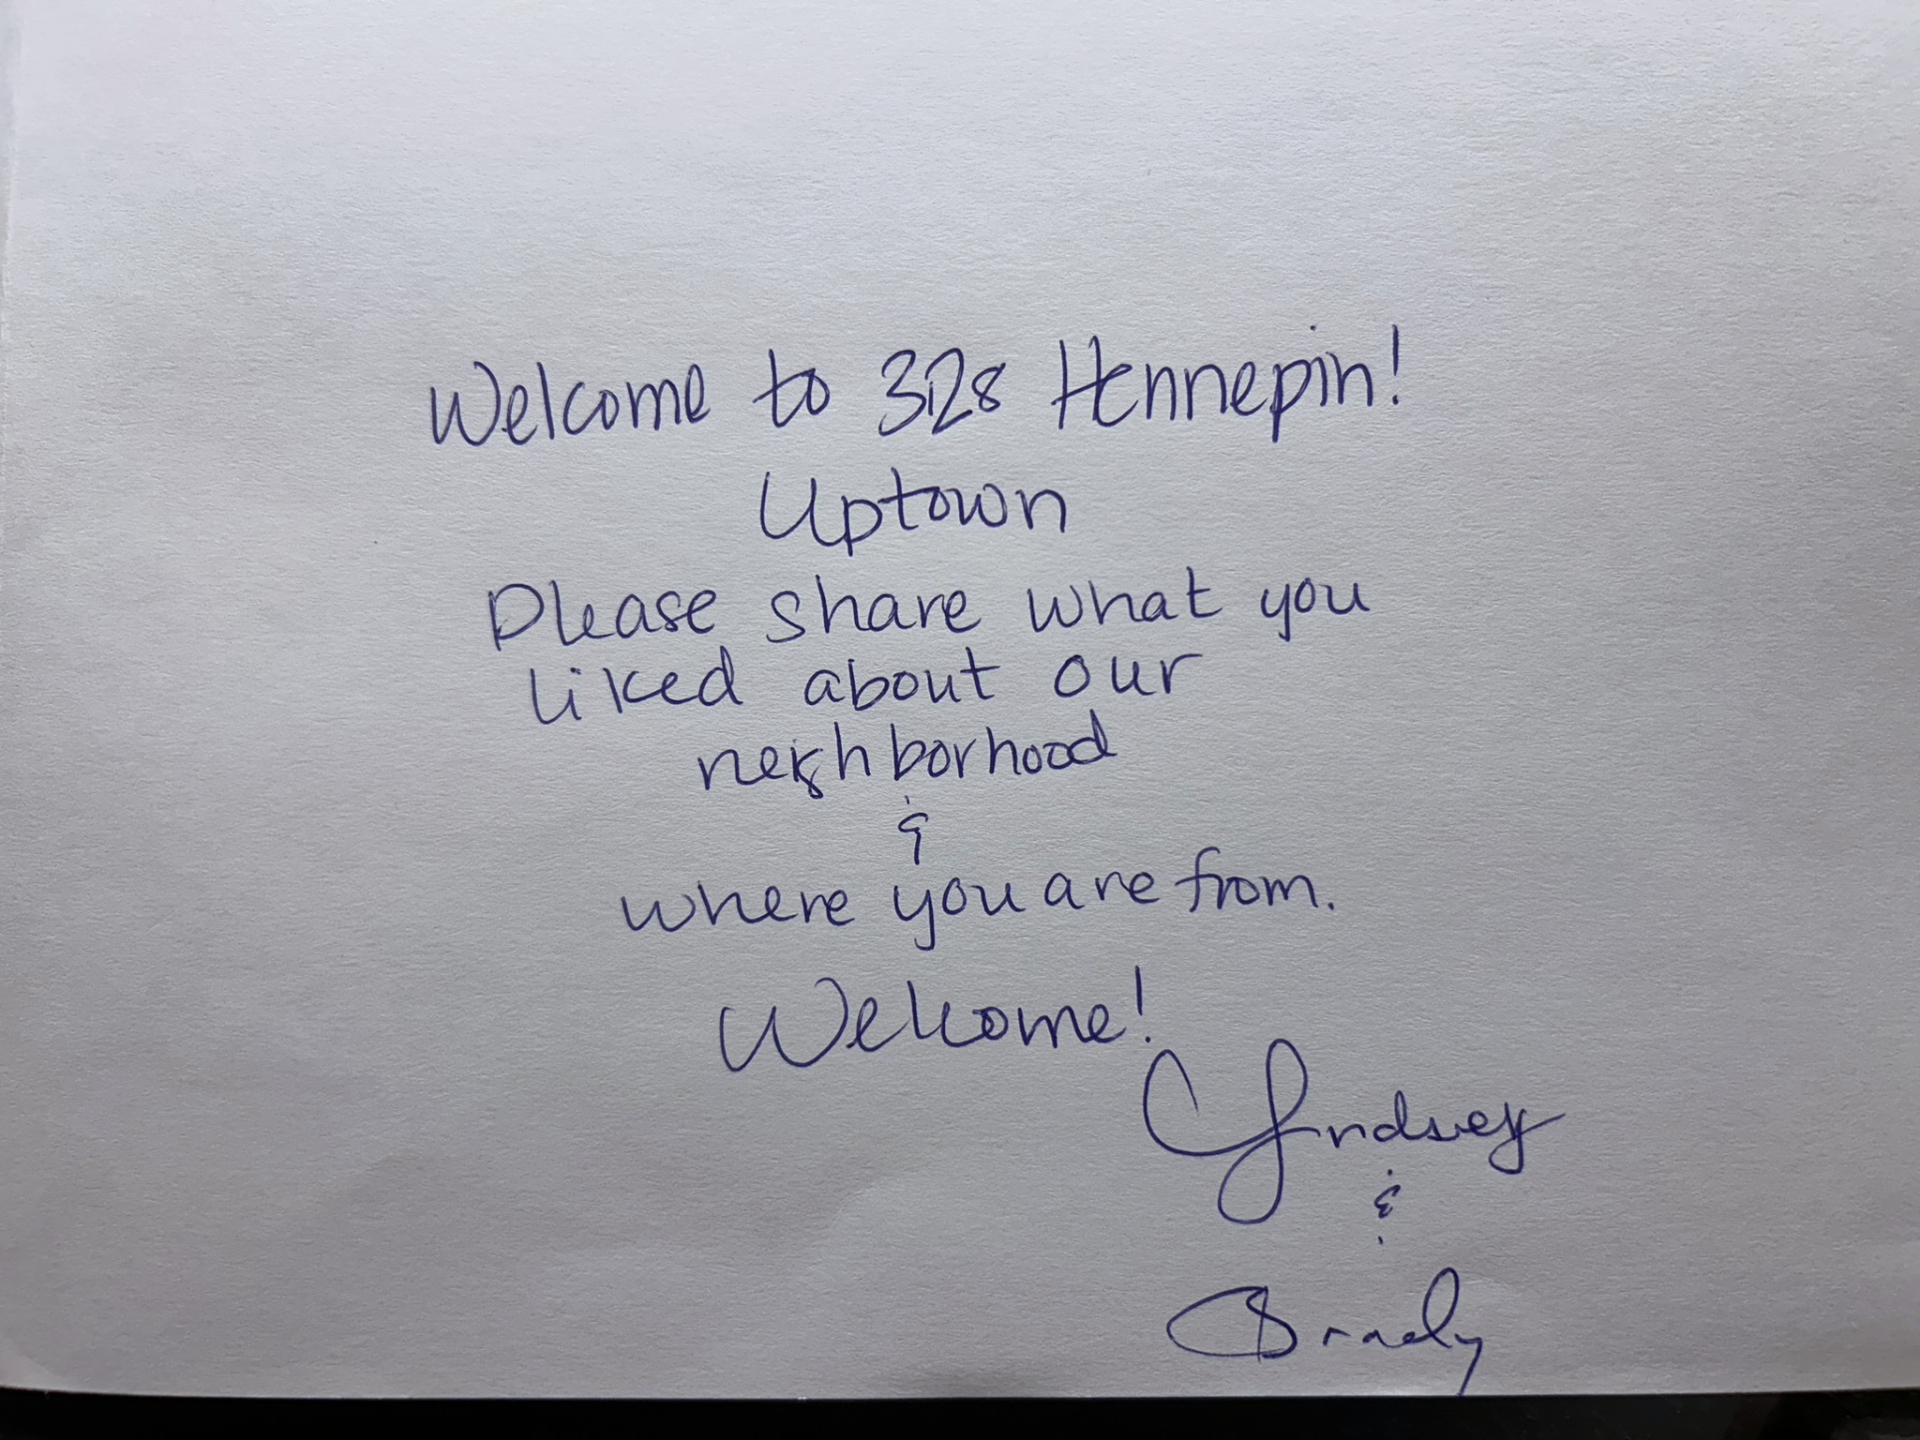 Welcome to 328 Hennepin!
Uptown
Please share what you
liked about our
neighborhood
&
where you are from.
Welcome!
Lindsey
&
Brady